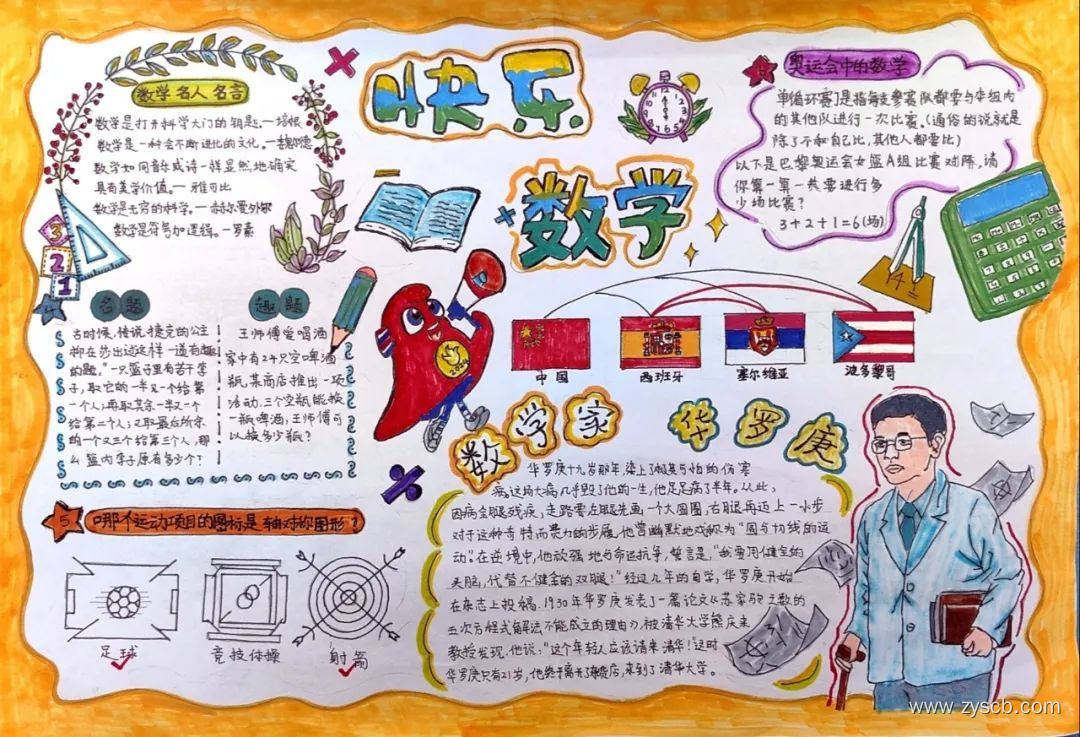 快乐
数学
数学名人名言
数学是打开科学大门的钥匙。一培根
数学是一种会不断进化的文化。一魏尔德
数学如同音乐或诗一样显然地确实
具有美学价值。一雅可比
数学是无穷的科学。一赫尔曼外尔
数学是符号加逻辑。一罗素
奥运会中的数学
单循环赛】是指每支参赛队都要与本组内
的其他队进行一次比赛。(通俗的说就是
除了不和自己比,其他人都要比)
以下是巴黎奥运会女篮A组比赛对阵,请
你算一算一共要进行多
少场比赛?
3+2+1=6(场)
3
2
1
名题
古时候,传说捷克的公主
柳布莎出过这样一道有趣
的题,"一只篮子里有若干李
子,取它的一半又一个给第
一个人,再取其余一半又一个
给第二个人,又取最后所余
的一个又三个给第三个人,那
么篮内李子原有多少个?
趣题
王师傅爱喝酒
家中有24只空啤酒
瓶,某商店推出一项
活动,三个空瓶能换
一瓶啤酒,王师傅可
以换多少瓶?
2024
中国
西班牙
塞尔维亚
波多黎哥
数学家
华罗庚
华罗庚十九岁那年,染上了极其可怕的伤寒
病,这场大病几乎毁了他的一生,他足足病了半年。从此,
因病左腿残疾,走路要左腿先画一个大圆圈,右腿再迈上一小步
对于这种奇特而费力的步履,他曾幽默地戏称为"圆与切线的运
动"。在逆境中,他顽强地与命运抗争,誓言是,"我要用健全的
头脑,代替不健全的双腿!"经过几年的自学,华罗庚开始
在杂志上投稿.1930年华罗庚发表了一篇论文《苏家驹之代数的
五次方程式解法不能成立的理由》,被清华大学熊庆来
教授发现,他说:"这个年轻人应该请来清华!"这时
华罗庚只有21岁,他终于离开了杂货店,来到了清华大学。
5
哪个运动项目的图标是轴对称图形?
足球
竞技体操
射箭
www.zyscb.com